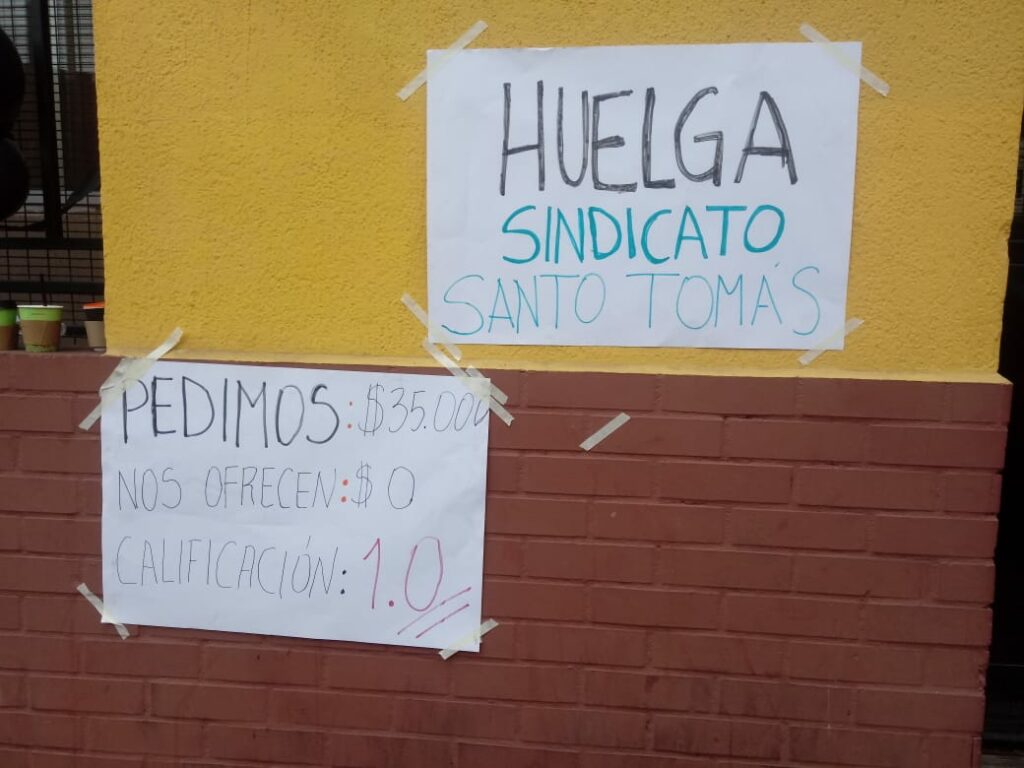 HUELGA
SINDICATO
SANTO TOMÁS
PEDIMOS: $35.000
NOS OFRECEN: $0
CALIFICACIÓN: 1.0